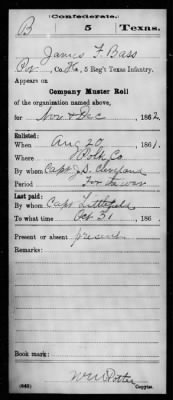 Confederate.
B 5 Texas.
James F. Bass
Co. 5 Reg't Texas Infantry.
Appears on
Company Muster Roll
of the organization named above,
for Nov & Dec, 1862
Enlisted:
When Aug 20, 1861.
Where Polk Co
By whom Capt. J. S. Cleveland
Period For the war
Last paid:
By whom Capt Littlefield
To what time Oct 31, 186
Present or absent present
Remarks:
Book mark:
Wm Potter
(642) Copyist.